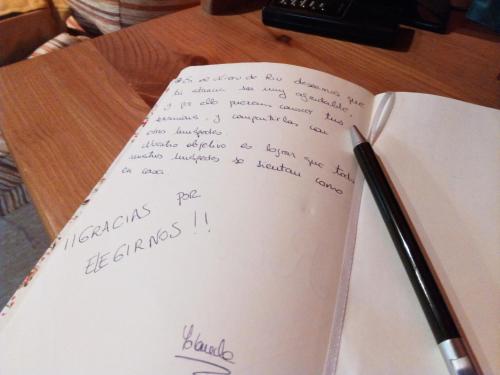 En el Libro de Riu deseamos que
tu estancia sea muy agradable,
y por ello queremos conocer tus
y compartirlas con
otros huéspedes.
Nuestro objetivo es lograr que todos
nuestros huéspedes se sientan como
en casa.
¡¡GRACIAS POR
ELEGIRNOS!!